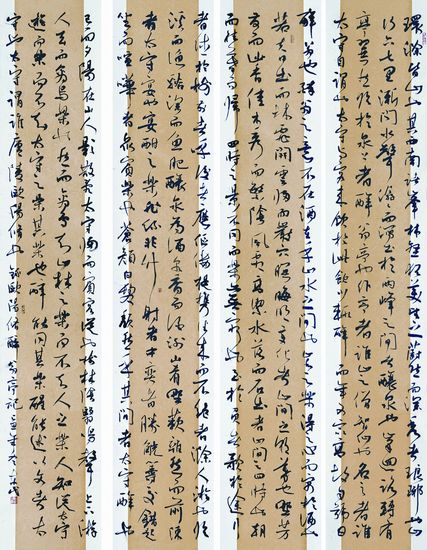 環滁皆山也其西南諸峰林壑尤美望之蔚然而深秀者瑯琊也山
行六七里漸聞水聲潺潺而瀉出於兩峰之間者釀泉也峰回路轉有
亭翼然臨於泉上者醉翁亭也作亭者誰山之僧智仙也名之者誰
太守自謂也太守與客來飲於此飲少輒醉而年又最高故自號曰
醉翁也醉翁之意不在酒在乎山水之間也山水之樂得之心而寓之酒也
若夫日出而林霏開雲歸而巖穴暝晦明變化者山間之朝暮也野芳
發而幽香佳木秀而繁陰風霜高潔水落而石出者山間之四時也朝
而往暮而歸四時之景不同而樂亦無窮也至於負者歌於途行
者休於樹前者呼後者應傴僂提攜往來而不絕者滁人遊也臨
溪而漁溪深而魚肥釀泉為酒泉香而酒洌山肴野蔌雜然而前陳
者太守宴也宴酣之樂非絲非竹射者中弈者勝觥籌交錯起
坐而喧嘩者眾賓歡也蒼顏白髮頹然乎其間者太守醉也
已而夕陽在山人影散亂太守歸而賓客從也樹林陰翳鳴聲上下遊
人去而禽鳥樂也然而禽鳥知山林之樂而不知人之樂人知從太守
遊而樂而不知太守之樂其樂也醉能同其樂醒能述以文者太
守也太守謂誰廬陵歐陽修也 錄歐陽修醉翁亭記